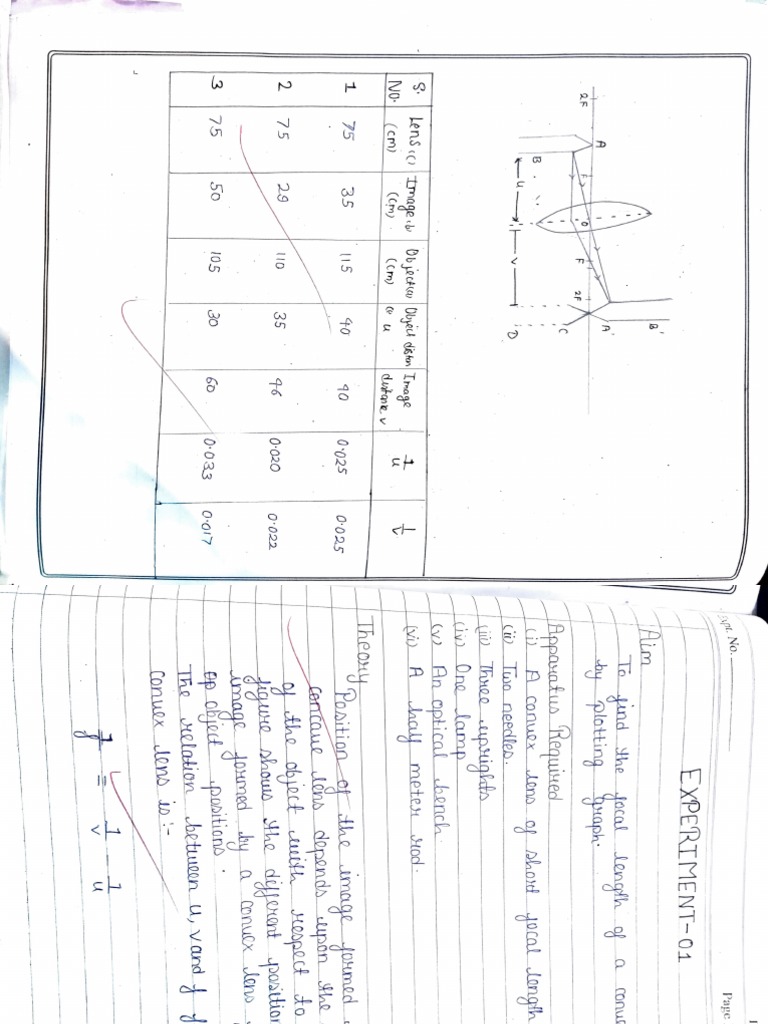 2F
A
F
B
O
F
2F
A'
B'
C
D
u
v
S. No.
Lens (c) (cm)
Image (cm)
Object (cm)
Object distan u
Image distance v
1/u
1/v
1 75 35 115 40 40 0.025 0.025
2 75 29 110 35 46 0.020 0.022
3 75 50 105 30 60 0.033 0.017
No.
Page
EXPERIMENT-01
Aim
To find the focal length of a
by plotting graph.
Apparatus Required
(i) A convex lens of short focal length
(ii) Two needles.
(iii) Three uprights
(iv) One lamp
(v) An optical bench.
(vi) A half meter rod.
Theory
Position of the image formed
concave lens depends upon the
of the object with respect to
figure shows the different position
image formed by a convex lens
op object positions.
The relation between u, v and f
convex lens is:-
1/f = 1/v - 1/u